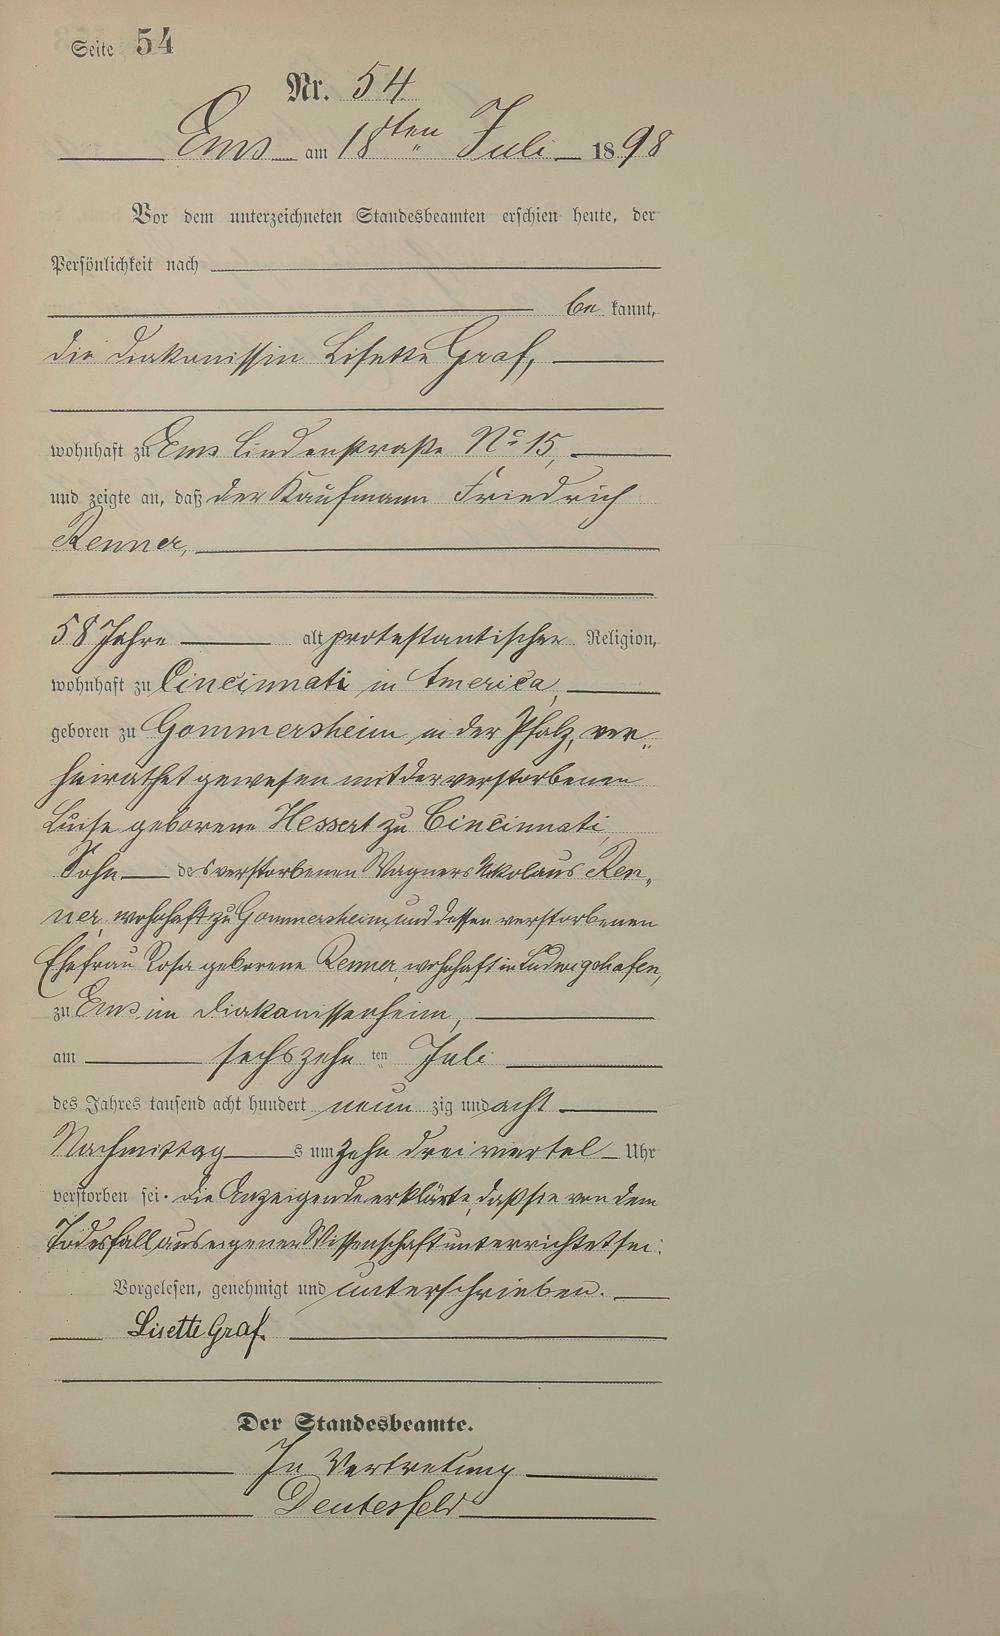 Seite 54
Nr. 54
Ems am 18ten Juli 1898
Vor dem unterzeichneten Standesbeamten erschien heute, der
Persönlichkeit nach
be kannt,
die Diakonissin Lisette Graf,
wohnhaft zu Ems Lindenstraße No 15,
und zeigte an, daß der Kaufmann Friedrich
Renner,
58 Jahre alt protestantischer Religion,
wohnhaft zu Cincinnati in America,
geboren zu Gommersheim in der Pfalz, ver-
heirathet gewesen mit der verstorbenen
Luise geborene Hessert zu Cincinnati,
Sohn des verstorbenen Wagners Nikolaus Ren-
ner, wohnhaft zu Gommersheim, und dessen verstorbenen
Ehefrau Rosa geborene Renner, wohnhaft in Ludwigshafen,
zu Ems im Diakonissenheim,
am sechszehn ten Juli
des Jahres tausend acht hundert neun zig und acht
Nachmittag s um zehn drei viertel Uhr
verstorben sei. Die Anzeigende erklärte, daß sie von dem
Todesfall aus eigener Wissenschaft unterrichtet sei.
Vorgelesen, genehmigt und unterschrieben.
Lisette Graf.
Der Standesbeamte.
In Vertretung
Deutesfeld